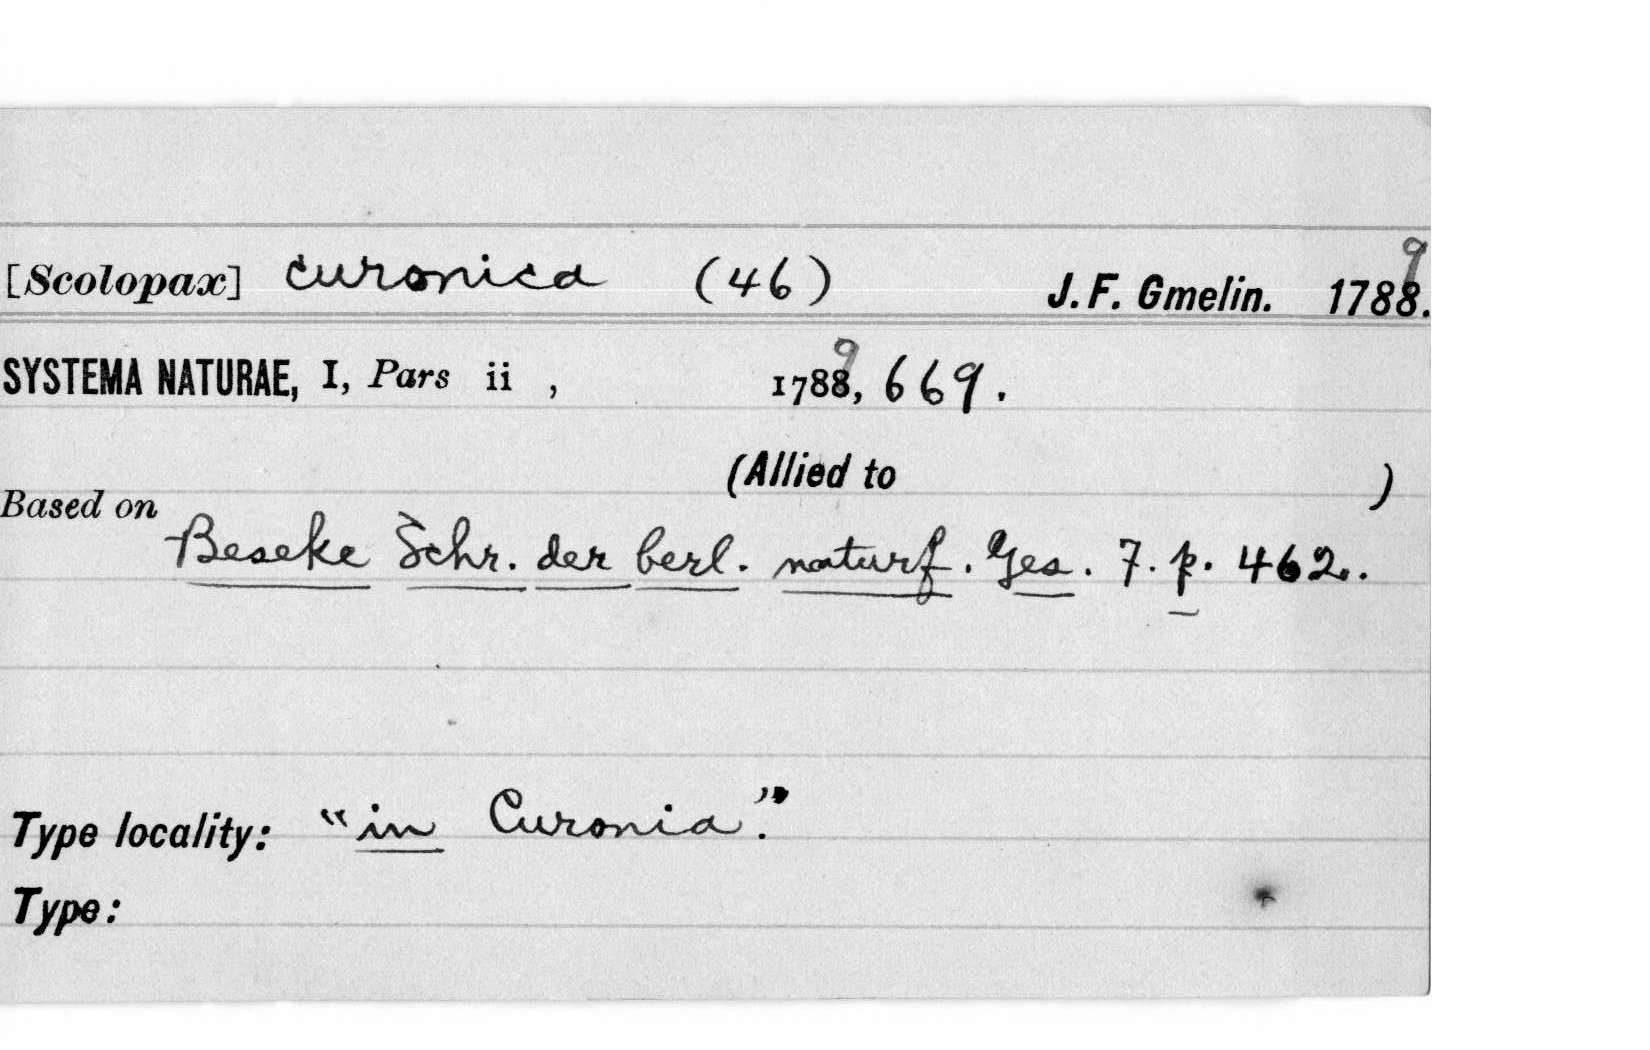 [Scolopax] curonica (46) J. F. Gmelin. 1788. 9
SYSTEMA NATURAE, I, Pars ii , 1788, 9 669.
(Allied to )
Based on
Beseke Schr. der berl. naturf. Ges. 7. p. 462.
Type locality: "in Curonia".
Type: